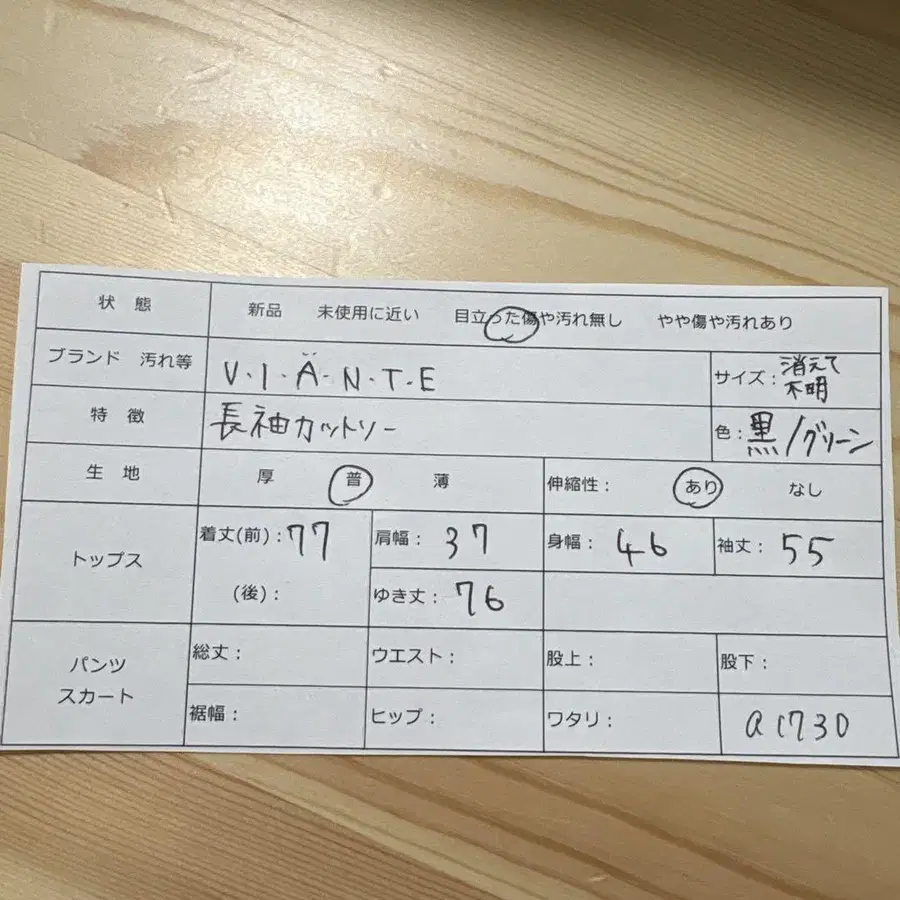 状 態 新品 未使用に近い 目立った傷や汚れ無し やや傷や汚れあり
ブランド 汚れ等 V・I・Ä・N・T・E サイズ：消えて
不明
特 徴 長袖カットソー 色：黒/グリーン
生 地 厚 普 薄 伸縮性： あり なし
トップス 着丈(前)：77 肩幅： 37 身幅： 46 袖丈： 55
(後)： ゆき丈： 76
パンツ 総丈： ウエスト： 股上： 股下：
スカート 裾幅： ヒップ： ワタリ： a1730